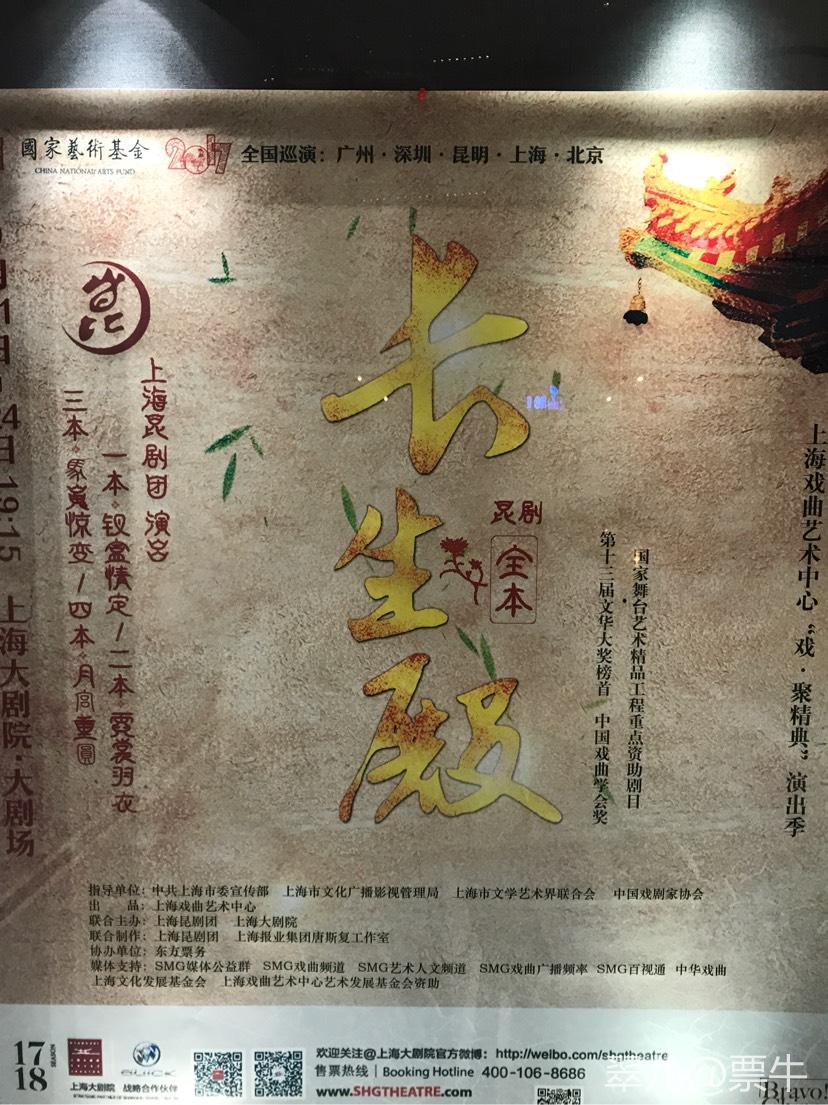 國家藝術基金
CHINA NATIONAL ARTS FUND
2017
全国巡演：广州·深圳·昆明·上海·北京
长生殿
昆剧
全本
国家舞台艺术精品工程重点资助剧目
第十三届文华大奖榜首 中国戏曲学会奖
上海戏曲艺术中心“戏·聚精典”演出季
昆
上海昆剧团 演出
一本·钗盒情定/二本·霓裳羽衣
三本·马嵬惊变/四本·月宫重圆
24日 19:15 上海大剧院·大剧场
指导单位：中共上海市委宣传部 上海市文化广播影视管理局 上海市文学艺术界联合会 中国戏剧家协会
出 品：上海戏曲艺术中心
联合主办：上海昆剧团 上海大剧院
联合制作：上海昆剧团 上海报业集团唐斯复工作室
协办单位：东方票务
媒体支持：SMG媒体公益群 SMG戏曲频道 SMG艺术人文频道 SMG戏曲广播频率 SMG百视通 中华戏曲
上海文化发展基金会 上海戏曲艺术中心艺术发展基金会资助
17
18
SEASON
上海大剧院
BUICK
战略合作伙伴
STRATEGIC PARTNER OF SHANGHAI GRAND THEATRE
欢迎关注@上海大剧院官方微博：http://weibo.com/shgtheatre
售票热线 | Booking Hotline 400-106-8686
www.SHGTHEATRE.com
Bravo!
@票牛